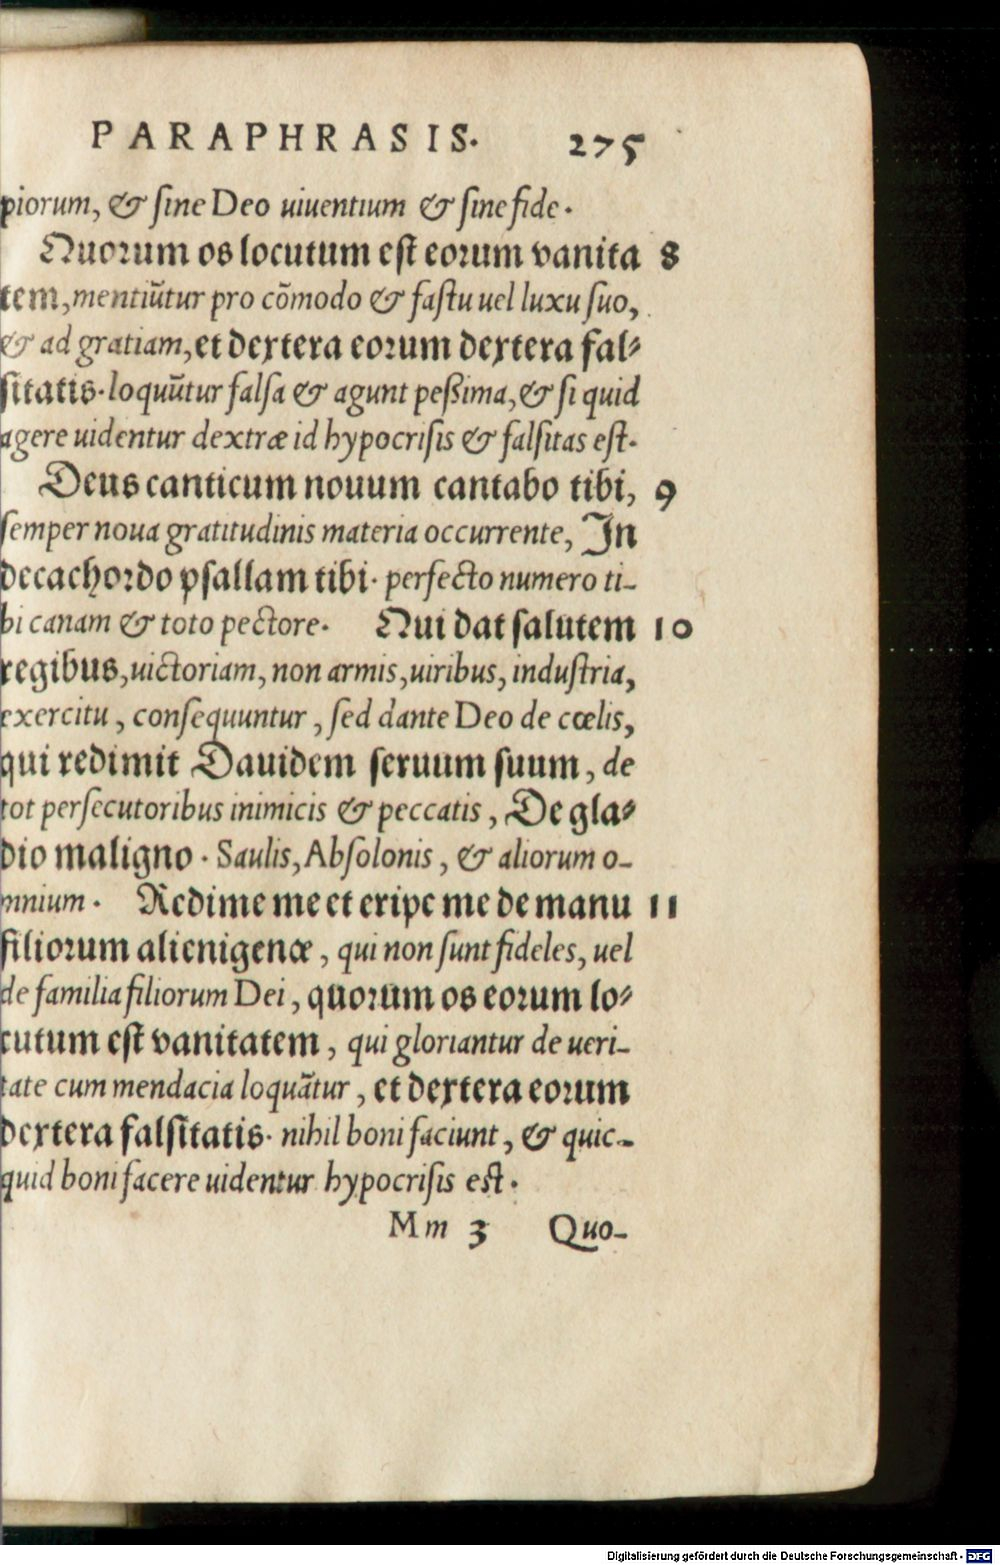 PARAPHRASIS. 275
piorum, & sine Deo uiuentium & sine fide.
Quorum os locutum est eorum vanita 8
tem, mentiūtur pro cōmodo & fastu uel luxu suo,
& ad gratiam, et dextera eorum dextera fal⸗
sitatis. loquūtur falsa & agunt peßima, & si quid
agere uidentur dextræ id hypocrisis & falsitas est.
Deus canticum nouum cantabo tibi, 9
semper noua gratitudinis materia occurrente, In
decachordo psallam tibi. perfecto numero ti-
bi canam & toto pectore. Qui dat salutem 10
regibus, uictoriam, non armis, uiribus, industria,
exercitu, consequuntur, sed dante Deo de cœlis,
qui redimit Dauidem seruum suum, de
tot persecutoribus inimicis & peccatis, De gla⸗
dio maligno. Saulis, Absolonis, & aliorum o-
mnium. Redime me et eripe me de manu 11
filiorum alienigenæ, qui non sunt fideles, uel
de familia filiorum Dei, quorum os eorum lo⸗
cutum est vanitatem, qui gloriantur de ueri-
tate cum mendacia loquātur, et dextera eorum
dextera falsitatis. nihil boni faciunt, & quic-
quid boni facere uidentur hypocrisis est.
Mm 3 Quo-
Digitalisierung gefördert durch die Deutsche Forschungsgemeinschaft - DFG